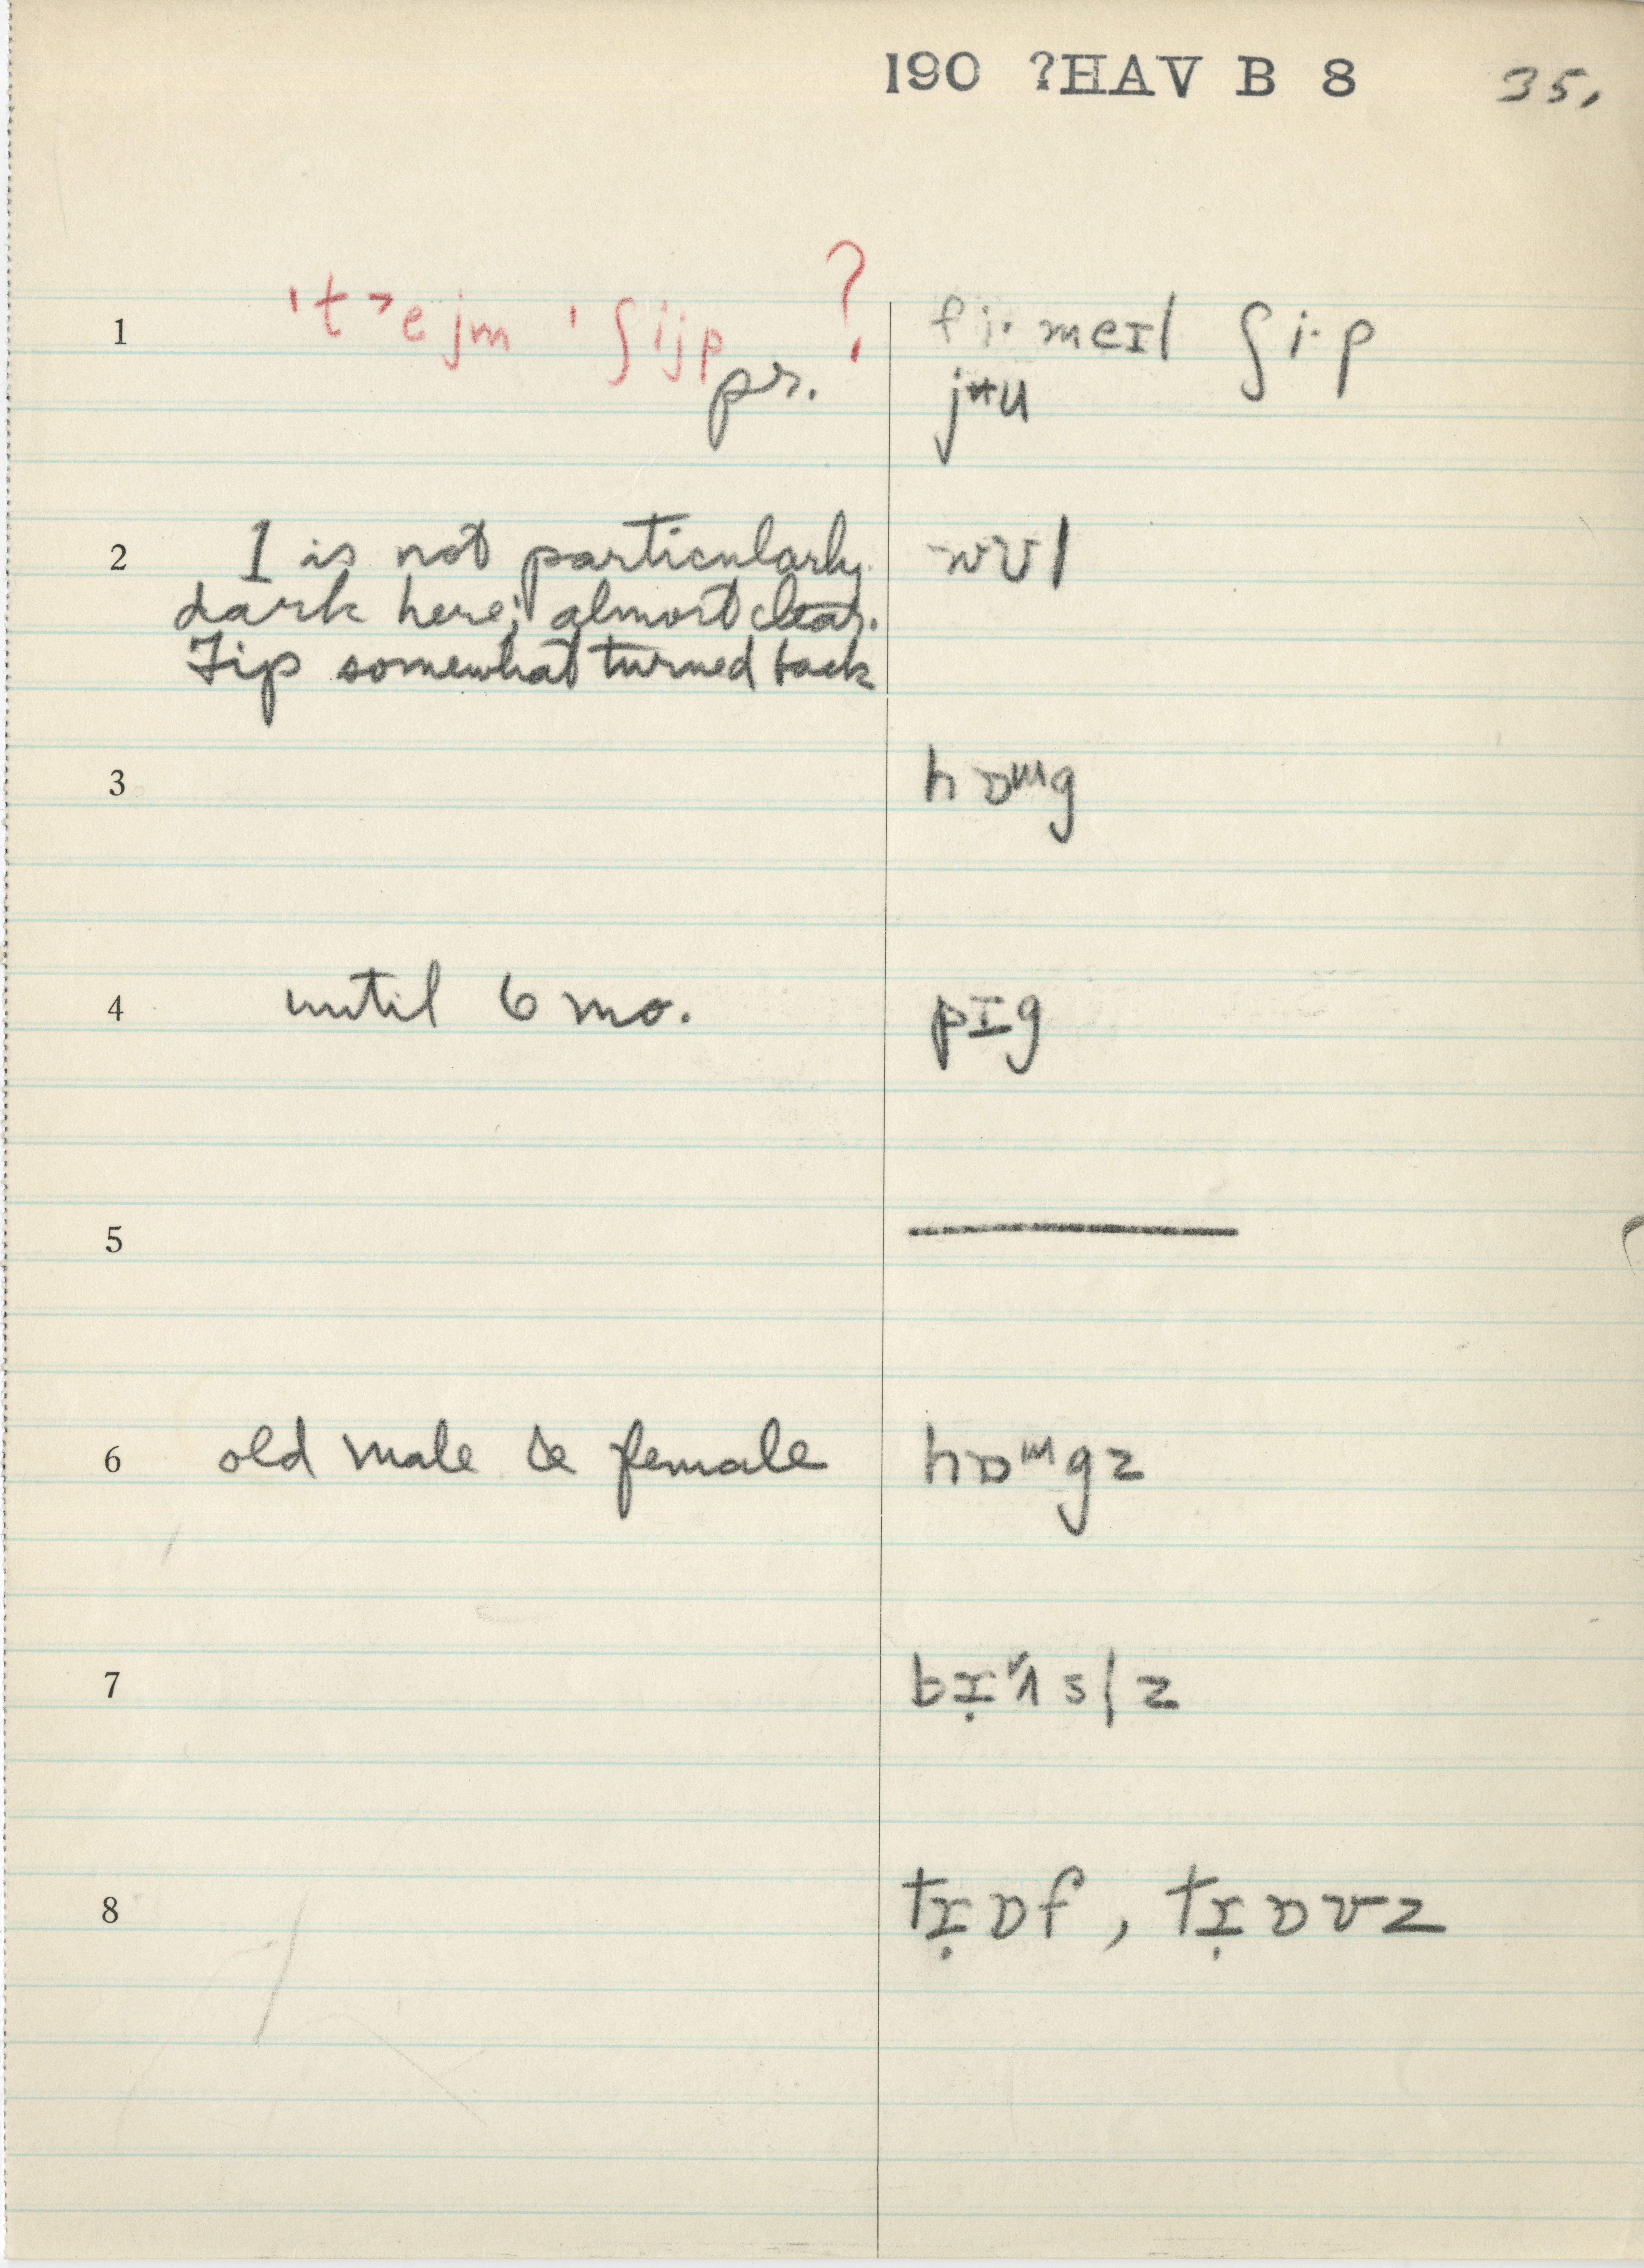 190 ?HAV B 8 35.
1 't˃ejm 'ʃijp ? fi· meɪl ʃi·p
pr. jᵾu
2 l is not particularly wʊl
dark here; almost clear.
Tip somewhat turned back
3 hɒᵚg
4 until 6 mo. pɪg
5 ———
6 old male & female hɒᵚgz
7 slz
8 tɪ̣ɒf, tɪ̣ɒvz